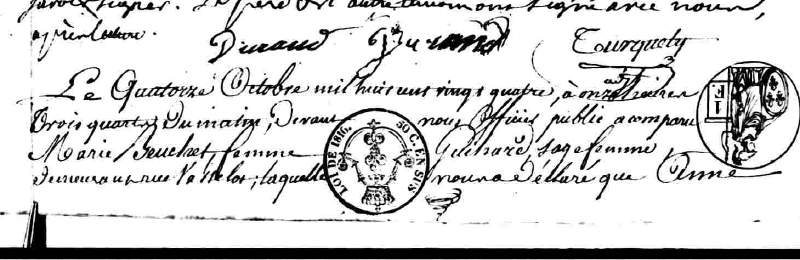 savoir signer. Le père et autre témoin ont signé avec nous,
après lecture.
Durand Durand Turquety
Le Quatorze Octobre mil huit cent vingt quatre, à onze heures
trois quarts du matin, Devant nous Officier public a comparu
Marie femme Guihard, sage femme,
demeurant rue Vasselot; laquelle nous a déclaré que Anne
LOI DE 1816. 50 C. EN SUS